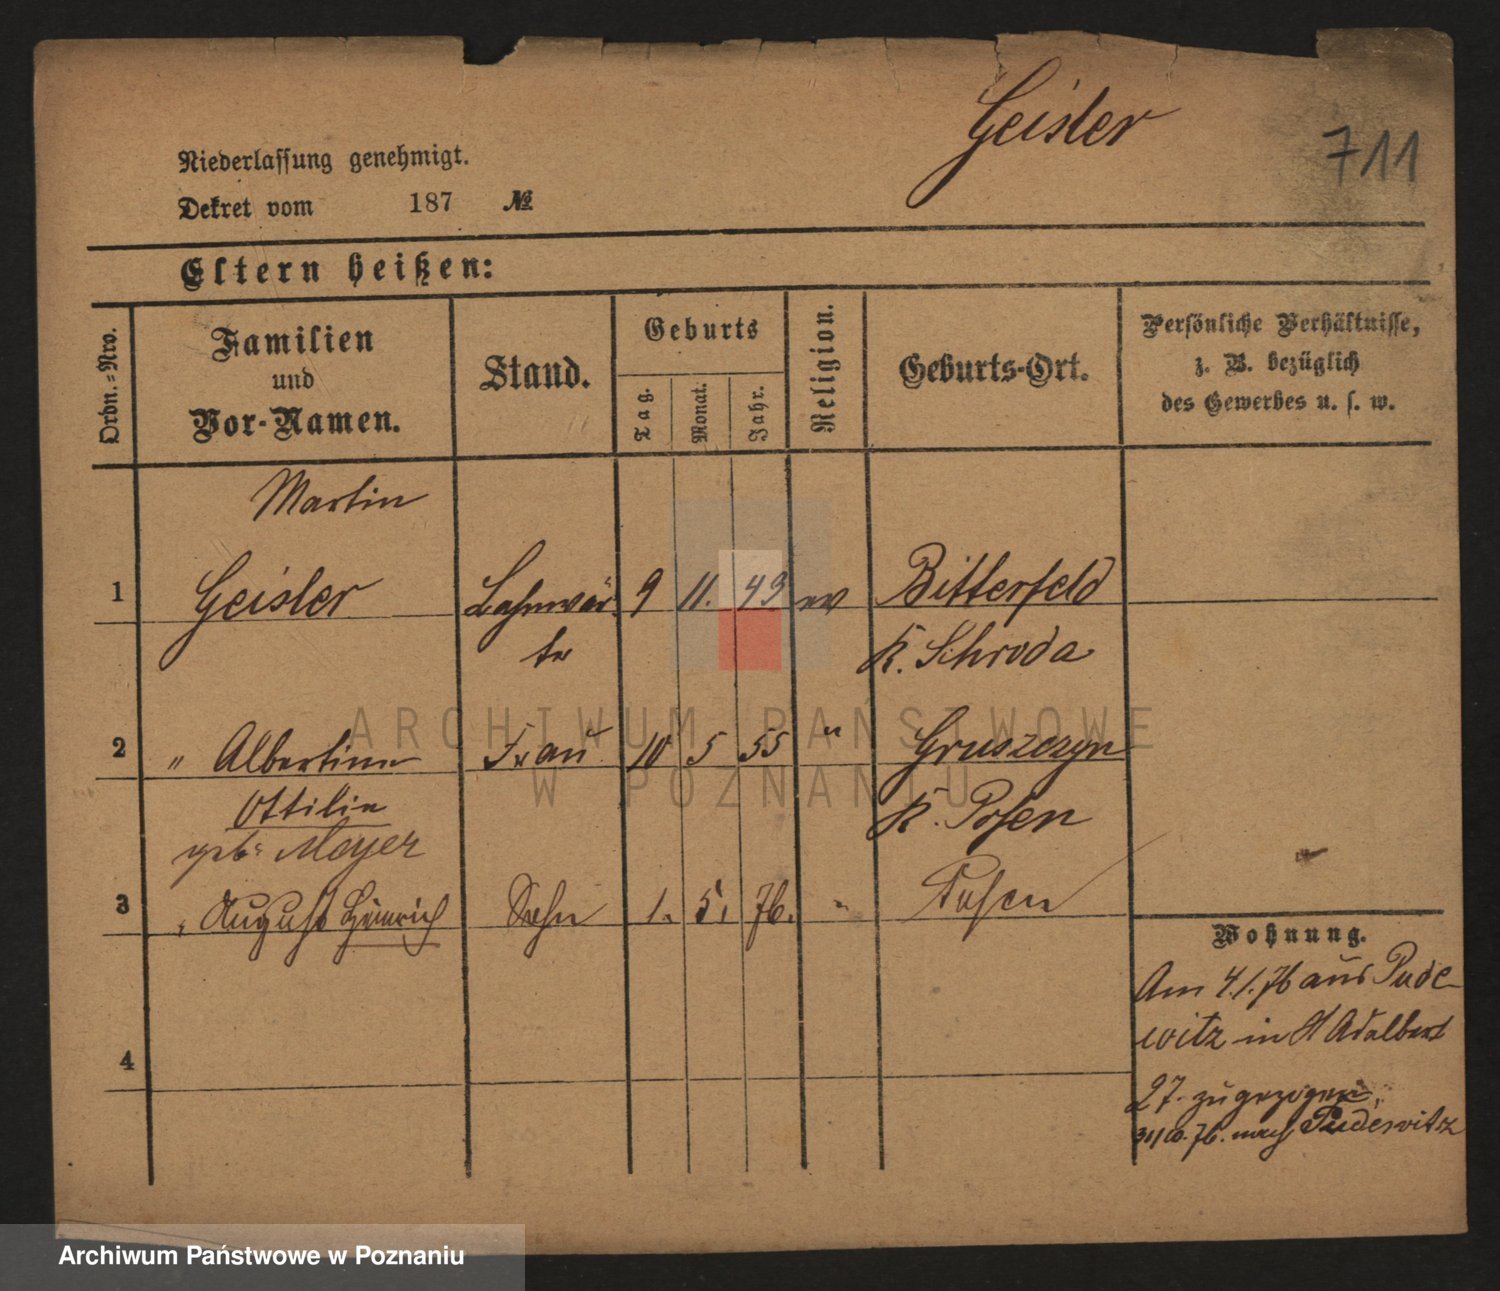 Geisler
711
Niederlassung genehmigt.
Dekret vom 187 №
Eltern heißen:
Ordn.-Nro.
Familien
und
Vor-Namen.
Stand.
Geburts
Tag.
Monat.
Jahr.
Religion.
Geburts-Ort.
Persönliche Verhältnisse,
z. B. bezüglich
des Gewerbes u. s. w.
Martin
1 Geisler Bahnwär- 9 11. 49 ev Bitterfeld
ter K. Schroda
2 " Albertine Frau 10 5 55 " Gruszczyn
Ottilie K. Posen
geb. Meyer
3 " August Heinrich Sohn 1. 5. 76. " Posen
Wohnung.
Am 4.1.76 aus Pude-
witz in St Adalbert
27. zugezogen,
31/10. 76. nach Pudewitz
4
ARCHIWUM PAŃSTWOWE
W POZNANIU
Archiwum Państwowe w Poznaniu